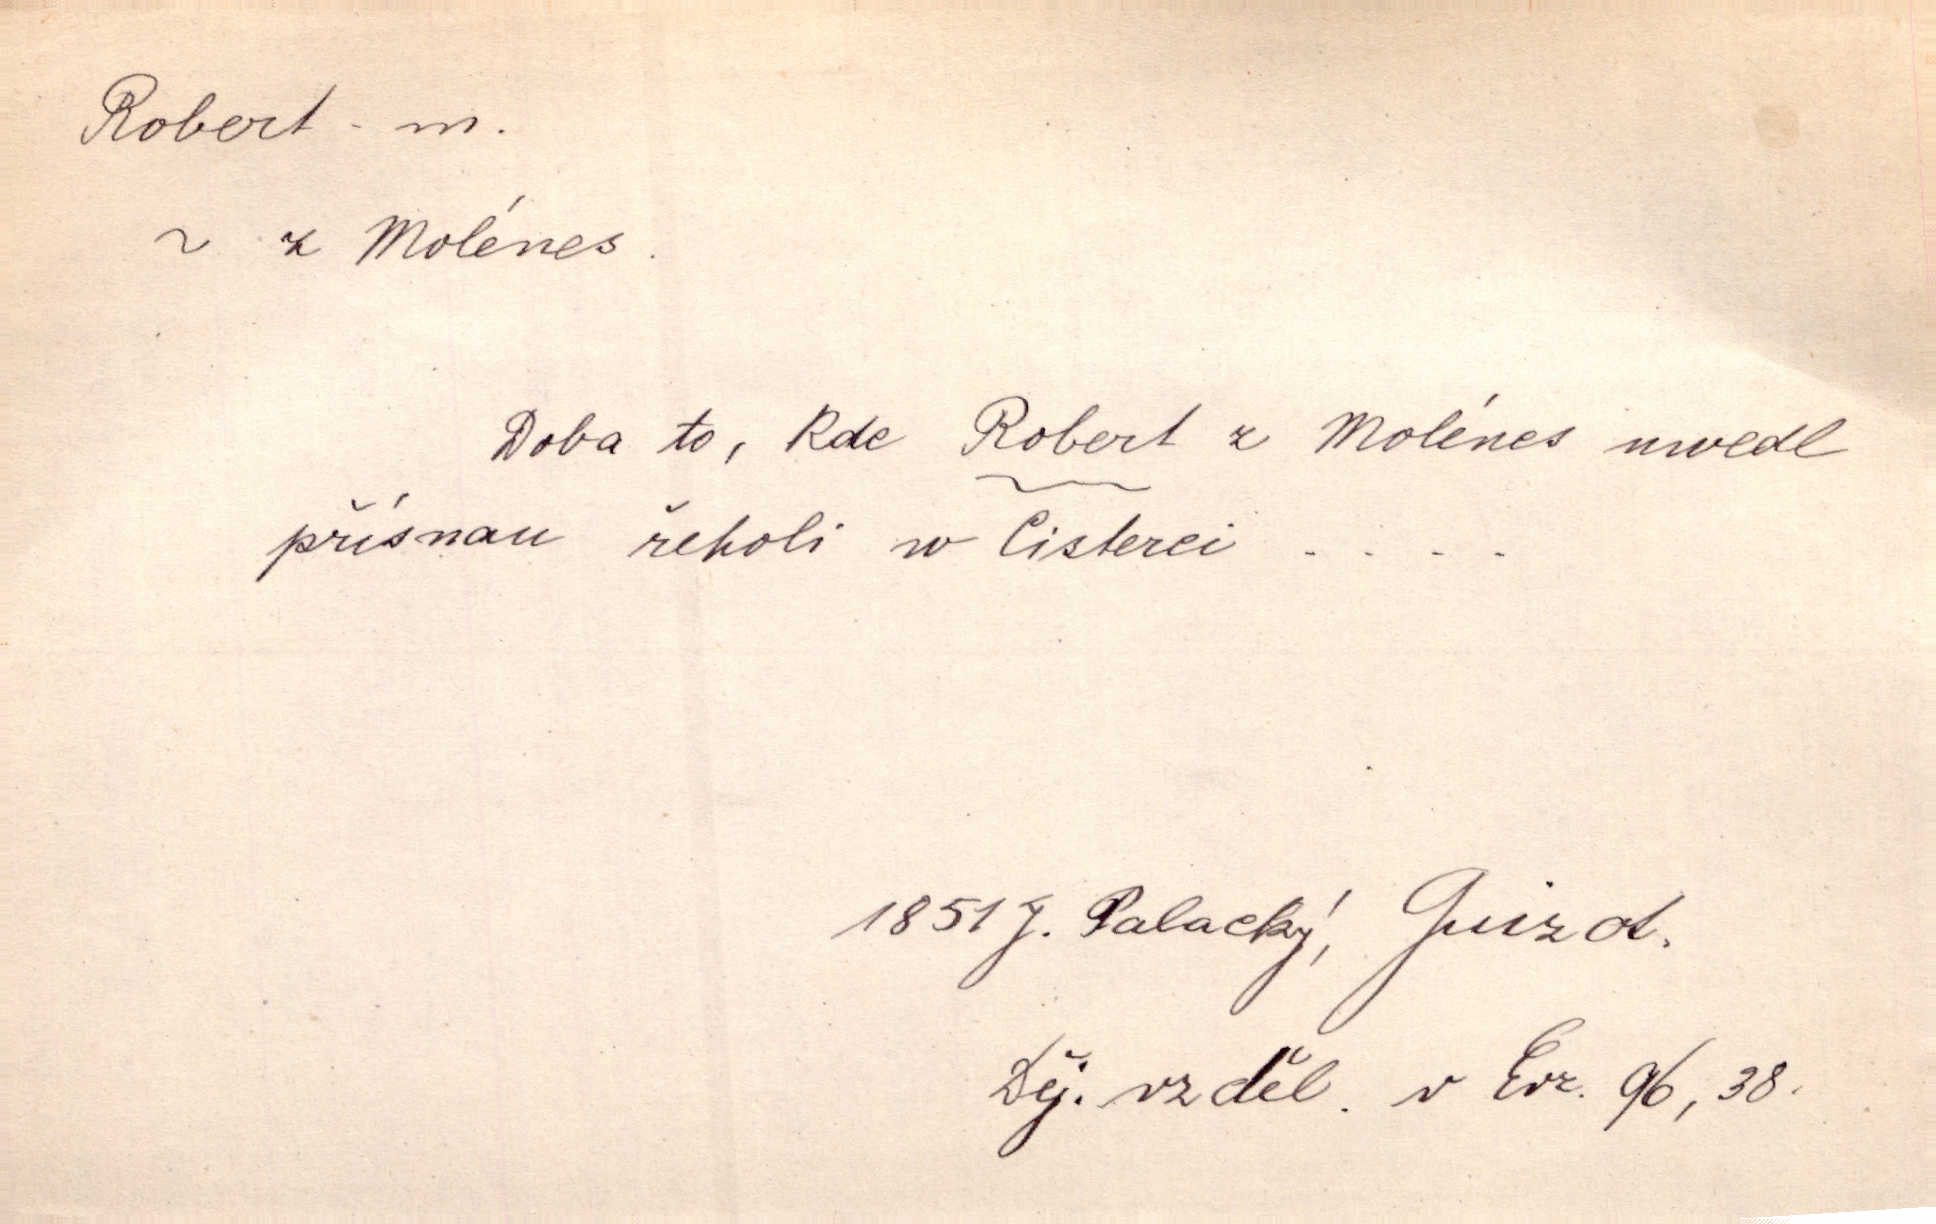 Robert - m.
~ z Molénes.
Doba to, kde Robert z Molénes uwedl
přísnau řeholi w Cisterci . . . .
1851 J. Palacký, Guizot.
Děj. vzděl. v Evr. 96, 38.